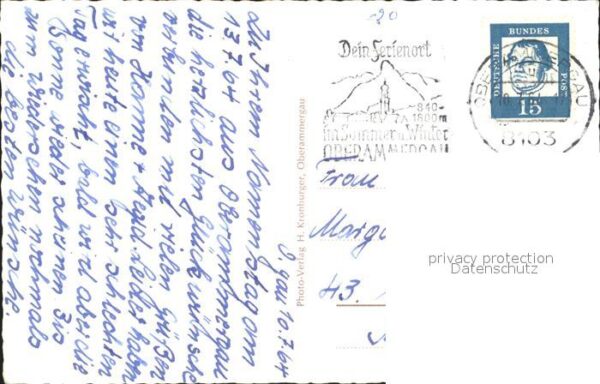 O'gau 10.7.64
Zu Ihrem Namenstag am
13.7.64 aus Oberammergau
die herzlichsten Glückwünsche
verbunden mit vielen Grüßen
von Hanne + Heidi leider haben
wir heute einen sehr schlechten
Tag erwischt, bald wird aber die
Sonne wieder scheinen. Bis
zum wiedersehen nochmals
die besten Wünsche.
Photo-Verlag H. Kronburger, Oberammergau
20
Dein Ferienort
840-
1800m
im Sommer u. Winter
OBERAMMERGAU
OBERAMMERGAU
8103
DEUTSCHE
BUNDES
POST
15
Frau
Marga
43.
privacy protection
Datenschutz